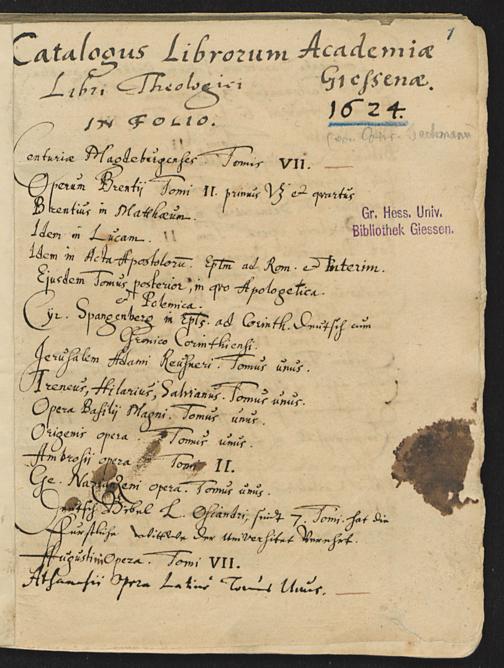 1
Catalogus Librorum Academiæ
Giessenæ.
Libri Theologici
1624.
IN FOLIO.
Centuriæ Magdeburgenses Tomis VII.
Operum Brentij Tomi II. primus et quartus
Brentius in Matthæum.
Idem in Lucam.
Idem in Acta Apostolorū. Eptm ad Rom. et Interim.
Ejusdem Tomus posterior, in quo Apologetica.
et Polemica.
Cyr. Spangenberg in Epts. ad Corinth. deutsch cum
Chronico Corinthiensi.
Jerusalem Adami Reusneri. Tomus unus.
Ireneus, Hilarius, Salvianus. Tomus unus.
Opera Basilij Magni. Tomus unus.
Origenis opera. Tomus unus.
Ambrosii opera Tomi II.
Gr. Nazianzeni opera. Tomus unus.
Deutsch Bibel L. Osiandri, sindt 7. Tomi. hat die
Fürstliche Wittwe der Universitet verehrt.
Augustini Opera. Tomi VII.
Athanasii Opera Latine Tomus Unus.
Gr. Hess. Univ.
Bibliothek Giessen.